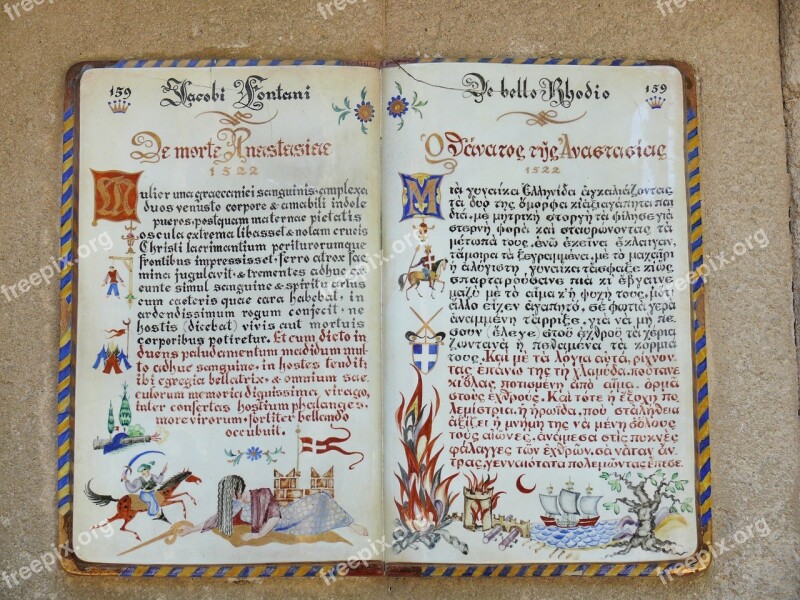 159
Jacobi Fontani
De morte Anastasiae
1522
Mulier una graecanici sanguinis · amplexa
duos venusto corpore & amabili indole
pueros · postquam maternae pietatis
oscula extrema libasset & notam crucis
Christi lacrimantium periturorumque
frontibus impressisset · ferro atrox foe
mina jugulavit · & trementes adhuc ex
eunte simul sanguine & spiritu artus
cum caeteris quae cara habebat · in
ardendissimum rogum conjecit · ne
hostis (dicebat) vivis aut mortuis
corporibus potiretur. Et cum dicto in
duens paludamentum madidum mul
to adhuc sanguine · in hostes tendit ·
ibi egregia bellatrix · & omnium sae
culorum memoria dignissima, virago,
inter confertas hostium phalanges ·
more virorum · fortiter bellando
occubuit.
De bello Rhodio
159
Ὁ θάνατος τῆς Ἀναστασίας
1522
Μιὰ γυναίκα Ἑλληνίδα ἀγκαλιάζοντας
τὰ δυό της ὄμορφα κι ἀξιαγάπητα παι
διά, μὲ μητρικὴ στοργὴ τὰ φίλησε γιὰ
στερνὴ φορὰ καὶ σταυρώνοντας τὰ
μέτωπά τους, ἐνῶ ἐκεῖνα ἔκλαιγαν,
τἄμοιρα τὰ ξεγραμμένα, μὲ τὸ μαχαίρι
ἡ ἀλύγιστη γυναίκα τἄσφαξε κι ὅπως
σπαρταροῦσανε πιὰ κι ἔβγαινε
μαζὺ μὲ τὸ αἷμα κ' ἡ ψυχή τους, μ' ὅτι
ἄλλο εἶχεν ἀγαπητό, σὲ φωτιὰ γερὰ
ἀναμμένη τἄρριξε, γιὰ νὰ μὴ πέ
σουν (ἔλεγε) στοῦ ἐχθροῦ τὰ χέρια
ζωντανὰ ἢ πεθαμένα τὰ κορμιὰ
τους. Καὶ μὲ τὰ λόγια αὐτά, ρίχνον
τας ἐπάνω της τὴ χλαμύδα, ποὔτανε
κι ὅλας ποτισμένη ἀπὸ αἷμα, ὁρμᾶ
στοὺς ἐχθρούς. Καὶ τότε ἡ ἔξοχη πο
λεμίστρια, ἡ ἡρωΐδα, ποὺ στ' ἀλήθεια
ἀξίζει ἡ μνήμη της νὰ μένη ὅλους
τοὺς αἰῶνες, ἀνάμεσα στὶς πυκνὲς
φάλαγγες τῶν ἐχθρῶν, σὰ νἄταν ἄν
τρας, γενναιότατα πολεμώντας ἔπεσε.
freepix.org